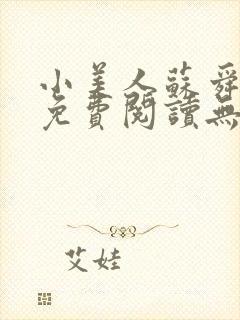 小美人蘇舜
免費閱讀無
艾娃